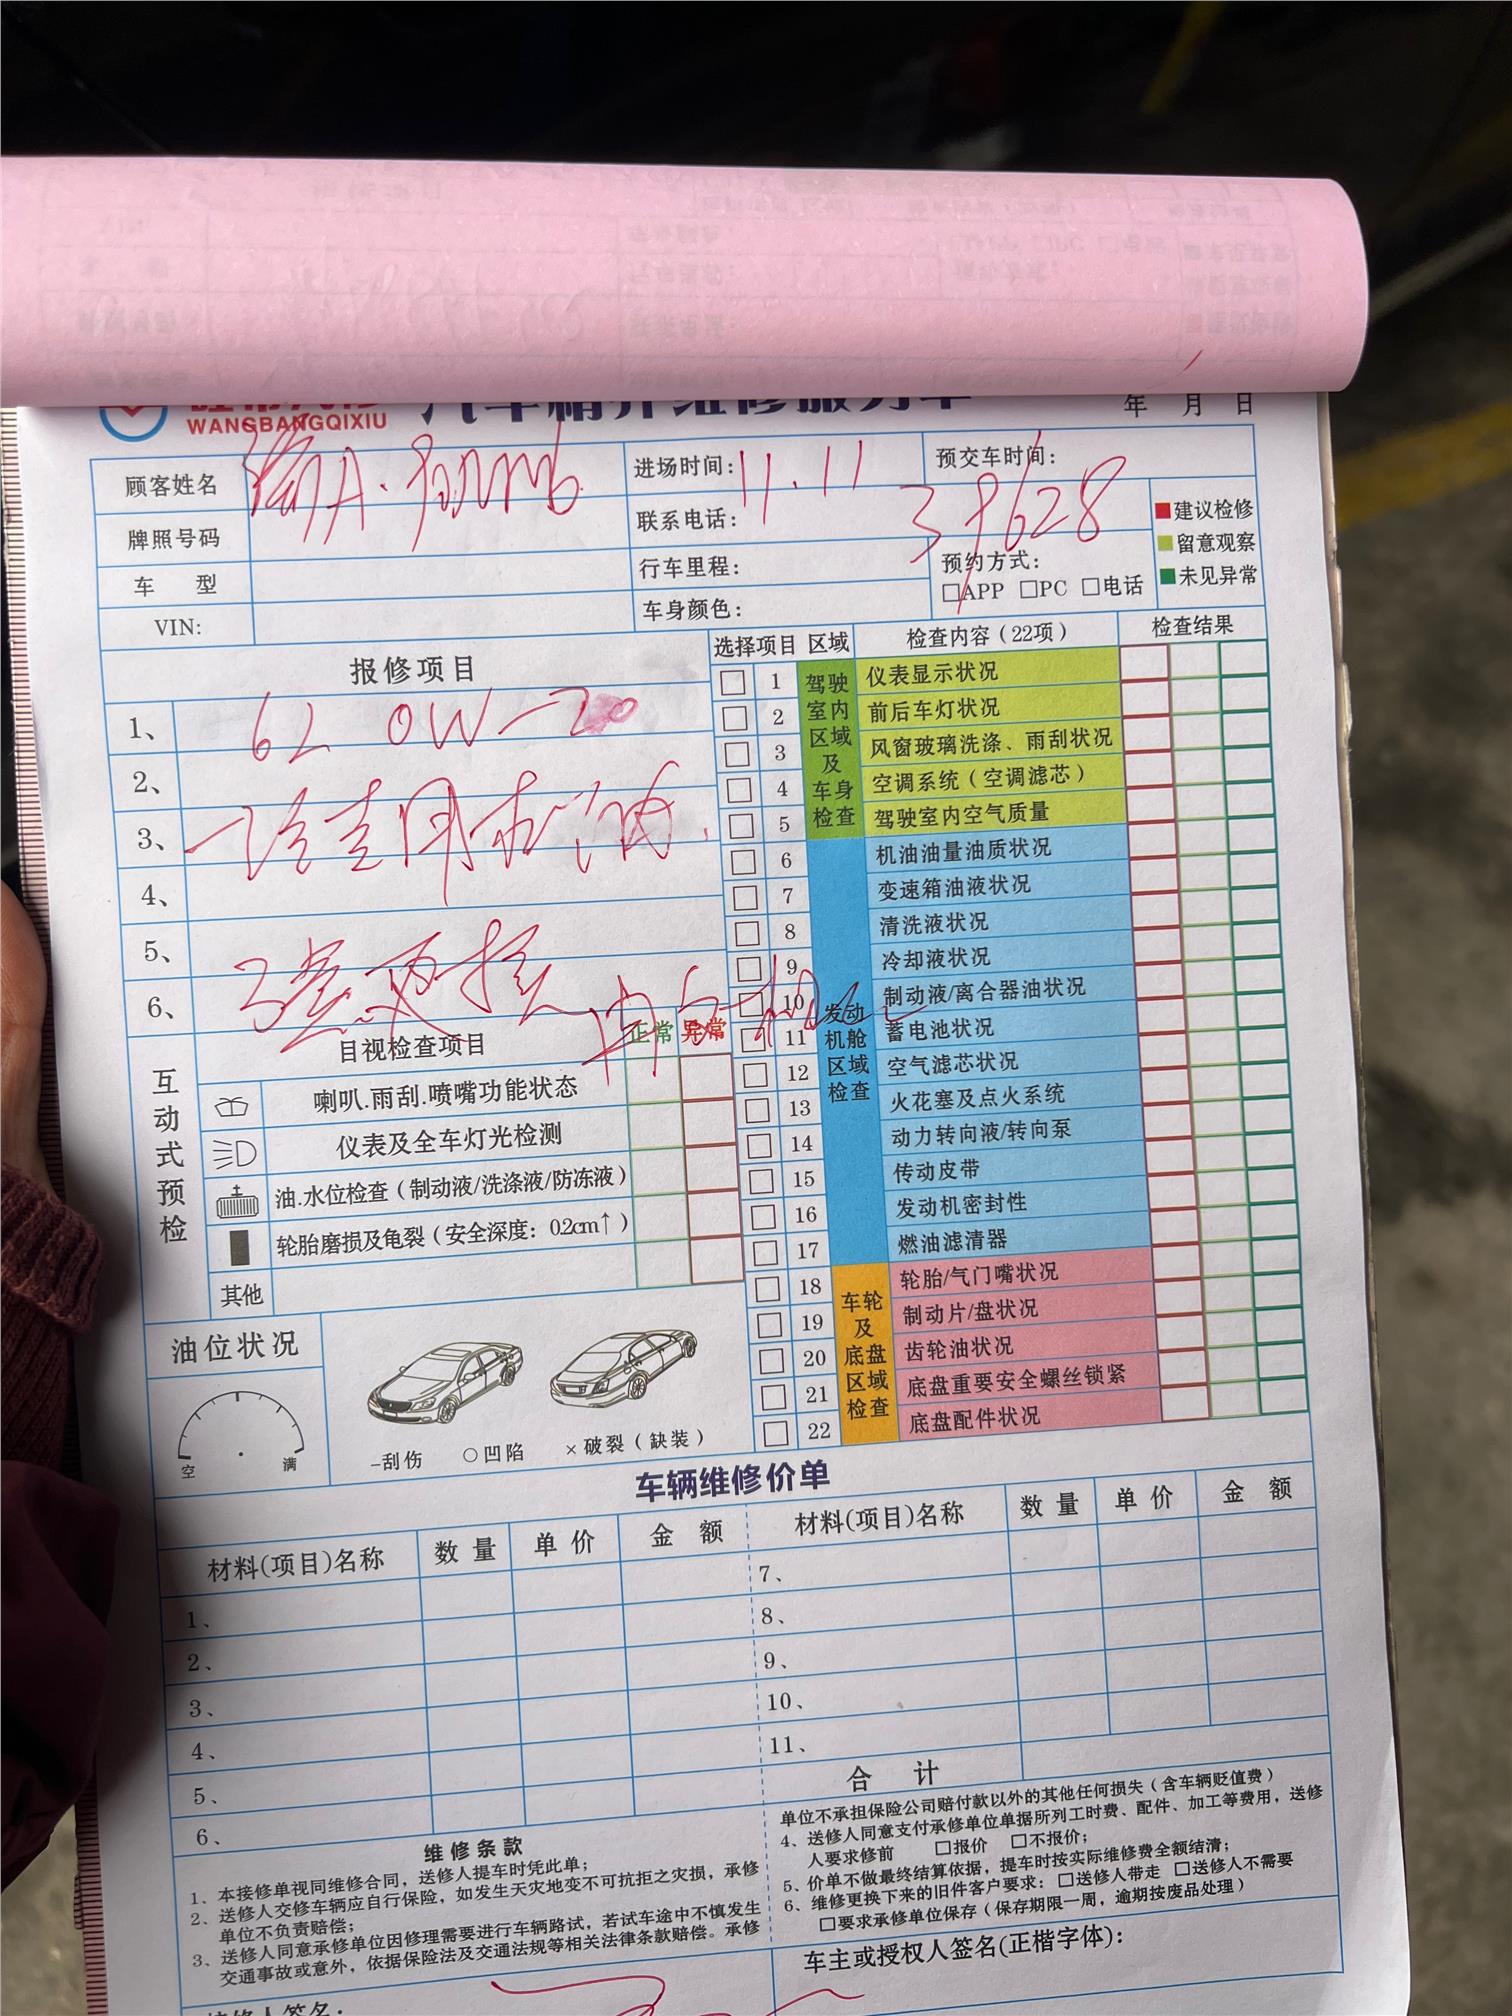 WANGBANGQIXIU 汽车精养维修服务单
年 月 日
顾客姓名
进场时间: 11.11
预交车时间:
牌照号码
联系电话:
39628
车 型
行车里程:
预约方式:
□APP □PC □电话
VIN:
车身颜色:
建议检修
留意观察
未见异常
报修项目
1、 6L 0W-20
2、
3、
4、
5、
6、
更换
选择项目 区域 检查内容（22项） 检查结果
驾驶室内区域及车身检查
1 仪表显示状况
2 前后车灯状况
3 风窗玻璃洗涤、雨刮状况
4 空调系统（空调滤芯）
5 驾驶室内空气质量
发动机舱区域检查
6 机油油量油质状况
7 变速箱油液状况
8 清洗液状况
9 冷却液状况
10 制动液/离合器油状况
11 蓄电池状况
12 空气滤芯状况
13 火花塞及点火系统
14 动力转向液/转向泵
15 传动皮带
16 发动机密封性
17 燃油滤清器
车轮及底盘区域检查
18 轮胎/气门嘴状况
19 制动片/盘状况
20 齿轮油状况
21 底盘重要安全螺丝锁紧
22 底盘配件状况
互动式预检
目视检查项目 正常 异常
喇叭.雨刮.喷嘴功能状态
仪表及全车灯光检测
油.水位检查（制动液/洗涤液/防冻液）
轮胎磨损及龟裂（安全深度：0.2cm↑）
其他
油位状况
空 满
-刮伤 ○凹陷 ×破裂（缺装）
车辆维修价单
材料(项目)名称 数 量 单 价 金 额 材料(项目)名称 数 量 单 价 金 额
1、 7、
2、 8、
3、 9、
4、 10、
5、 11、
6、 合 计
维修条款
1、本接修单视同维修合同，送修人提车时凭此单；
2、送修人交修车辆应自行保险，如发生天灾地变不可抗拒之灾损，承修
单位不负责赔偿；
3、送修人同意承修单位因修理需要进行车辆路试，若试车途中不慎发生
交通事故或意外，依据保险法及交通法规等相关法律条款赔偿。承修
单位不承担保险公司赔付款以外的其他任何损失（含车辆贬值费）
4、送修人同意支付承修单位单据所列工时费、配件、加工等费用，送修
人要求修前 □报价 □不报价；
5、价单不做最终结算依据，提车时按实际维修费全额结清；
6、维修更换下来的旧件客户要求：□送修人带走 □送修人不需要
□要求承修单位保存（保存期限一周，逾期按废品处理）
车主或授权人签名(正楷字体):
接修人签名: